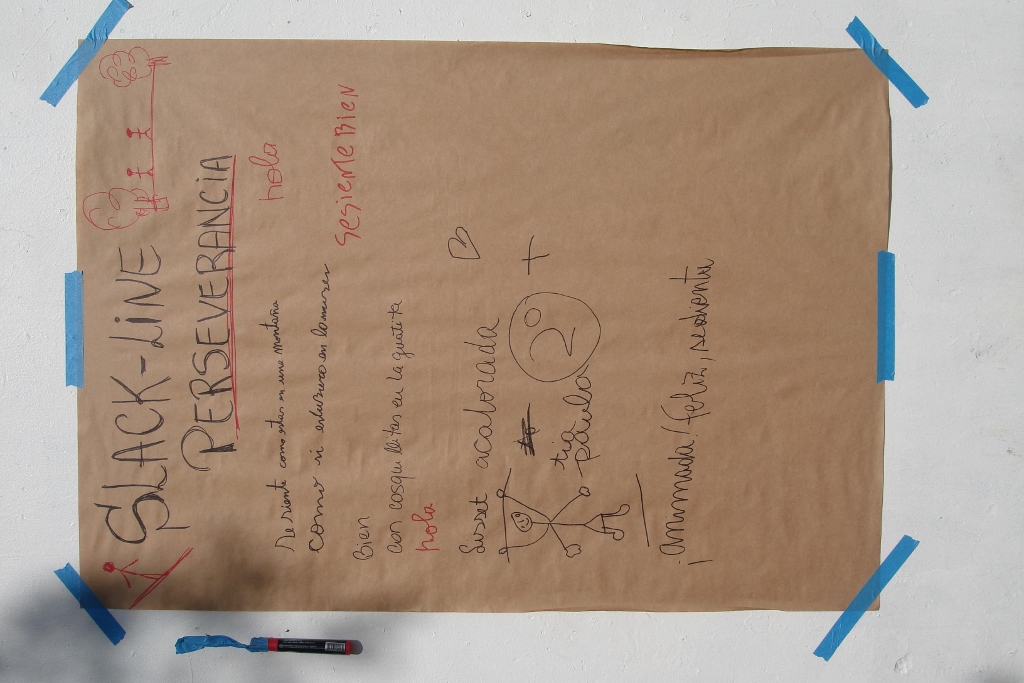 SLACK-LINE
PERSEVERANCIA
hola
se siente como estar en una montaña
como si estuviera en las nubes
SESIENTE BIEN
Bien
con cosquillitas en la guatita
hola
Susset acalorada
tia paula 2° +
¡Animada! feliz, sedienta